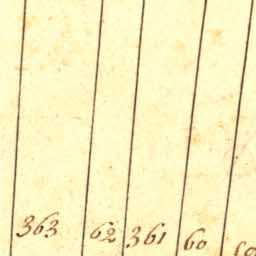 363 62 361 60